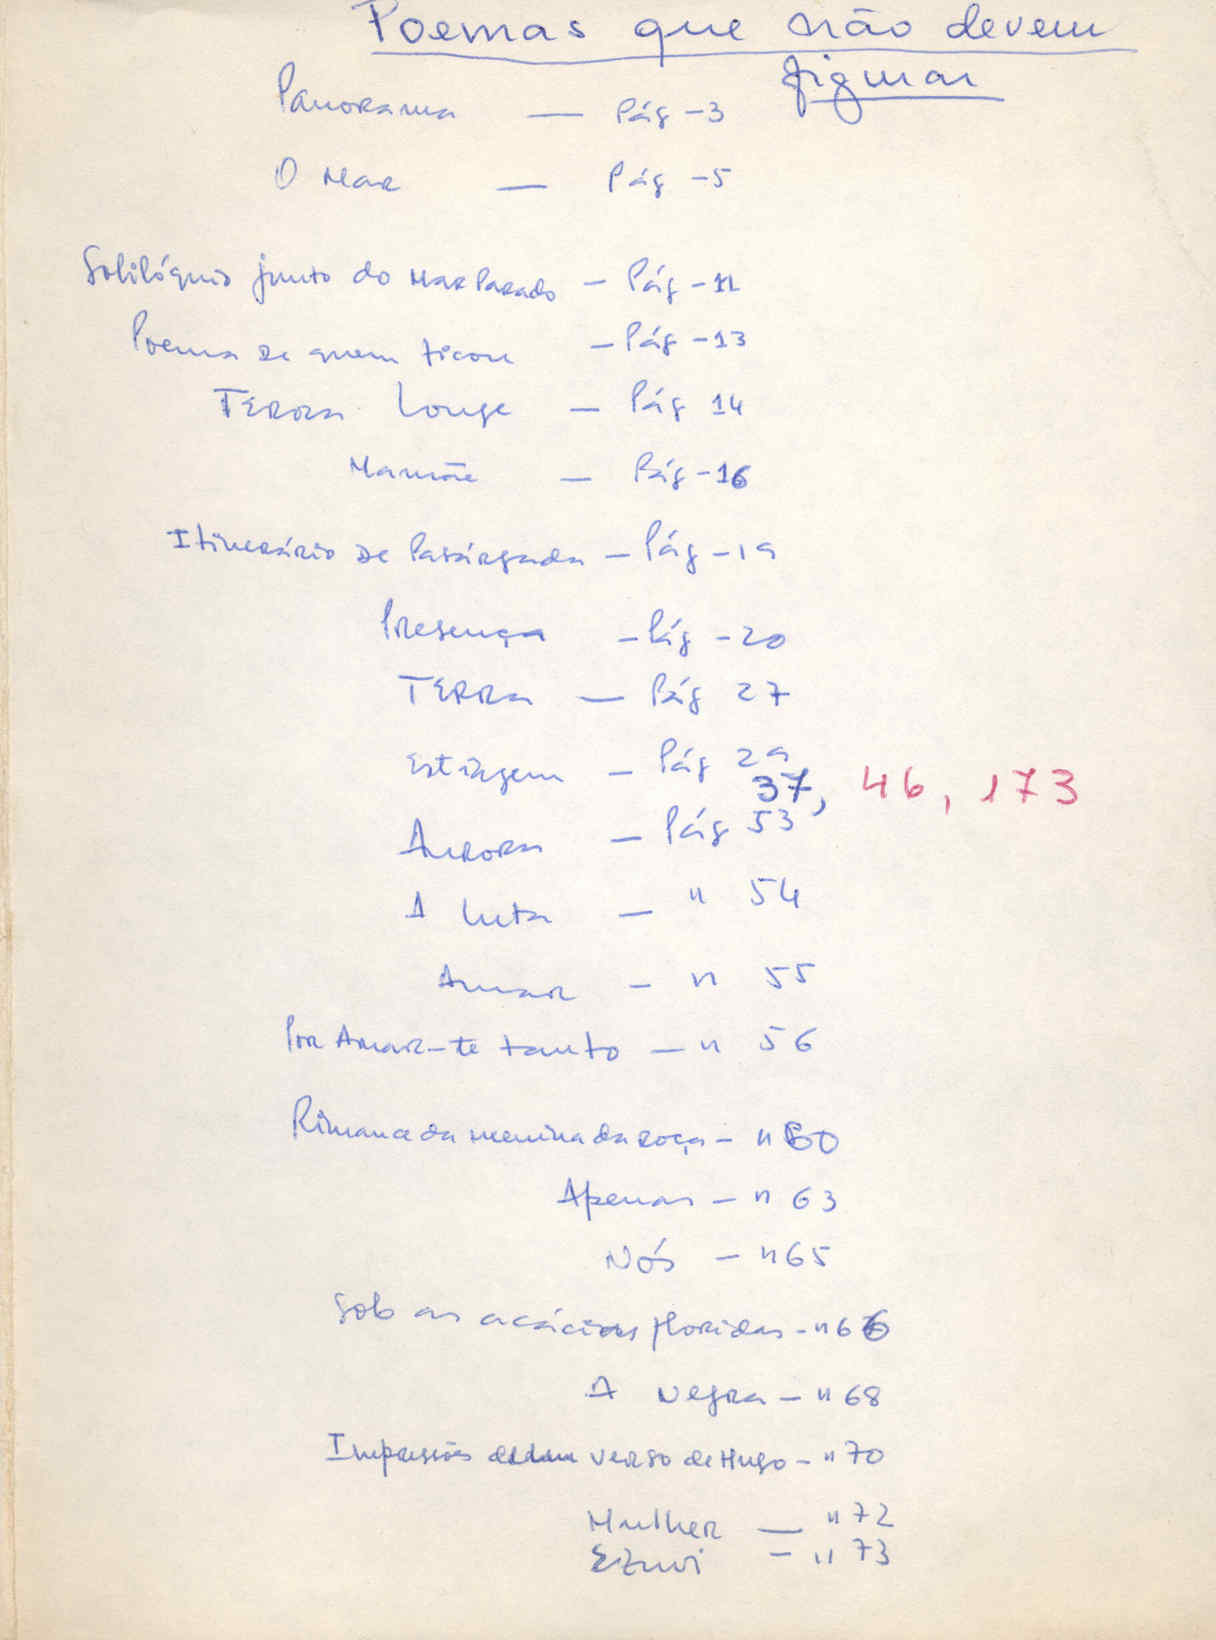 Poemas que não devem
figurar
Panorama — Pág - 3
O Mar — Pág - 5
Solilóquio junto do Mar Parado — Pág - 11
Poema de quem ficou — Pág - 13
TERRA Longe — Pág 14
Mamãe — Pág - 16
Itinerário de Pasárgada — Pág - 19
Presença — Pág - 20
TERRA — Pág 27
Estiagem — Pág 29
37, 46, 173
Aurora — Pág 53
A luta — " 54
Amar — " 55
Por Amar-te tanto — " 56
Rimance da menina da roça — " 60
Apenas — " 63
Nós — " 65
Sob as acácias floridas - " 66
A Negra — " 68
Impressões verso de Hugo - " 70
Mulher — " 72
— " 73